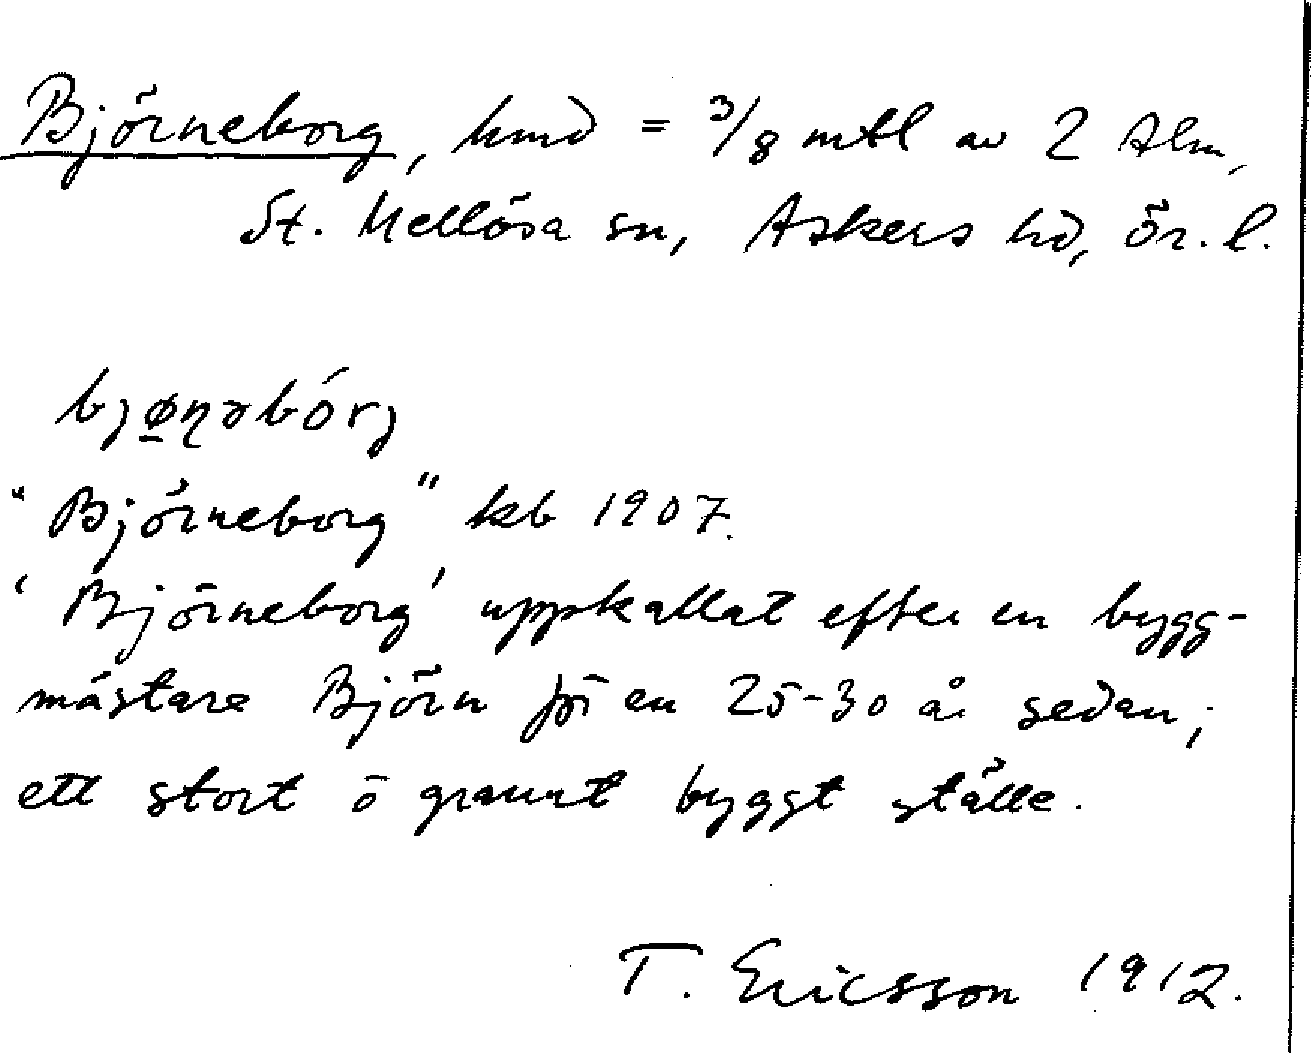 Björneborg, hmd = 3/8 mtl av 2 Alm,
St. Mellösa sn, Askers hd, Ör. l.
bjø̠ɳəbórj
"Björneborg" kb 1907.
'Björneborg' uppkallat efter en bygg-
mästare Björn för en 25-30 år sedan;
ett stort o grannt byggt ställe.
T. Ericsson 1912.